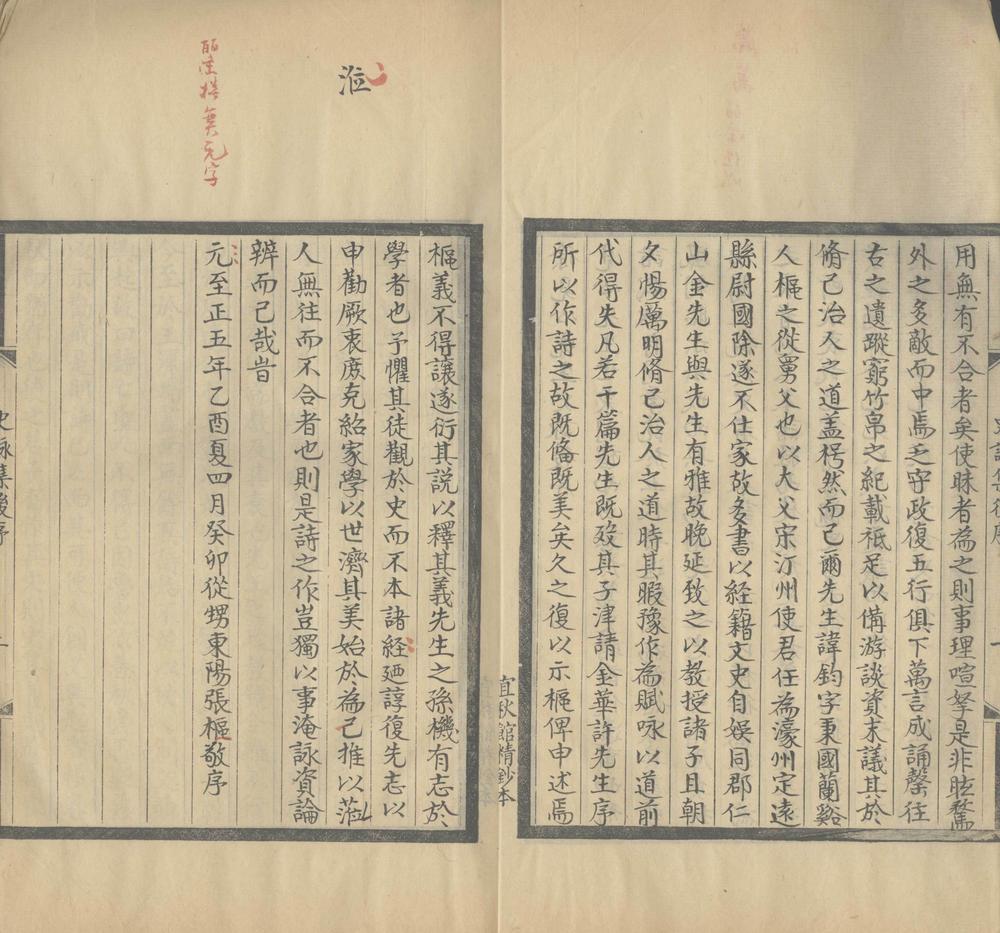 用無有不合者矣使昧者為之則事理喧拏是非眩騖
外之多敵而中焉乏守政復五行俱下萬言成誦罄往
古之遺蹤窮竹帛之紀載祗足以備游談資末議其於
脩己治人之道盖枵然而已爾先生諱鈞字秉國蘭谿
人樞之從舅父也以大父宋汀州使君任為濠州定遠
縣尉國除遂不仕家故多書以経籍文史自娛同郡仁
山金先生與先生有雅故晚延致之以教授諸子且朝
夕惕厲明脩己治人之道時其暇豫作為賦咏以道前
代得失凡若干篇先生既歿其子津請金華許先生序
所以作詩之故既備既美矣久之復以示樞俾申述焉
宜秋館精鈔本
樞義不得讓遂衍其説以釋其義先生之孫機有志於
學者也予懼其徒觀於史而不本諸経廼諄復先志以
申勸厥衷庶克紹家學以世濟其美始於為己推以蒞
人無往而不合者也則是詩之作豈獨以事淹詠資論
辨而已哉旹
元至正五年乙酉夏四月癸卯從甥東陽張樞敬序
史詠集後序
二
蒞
元字